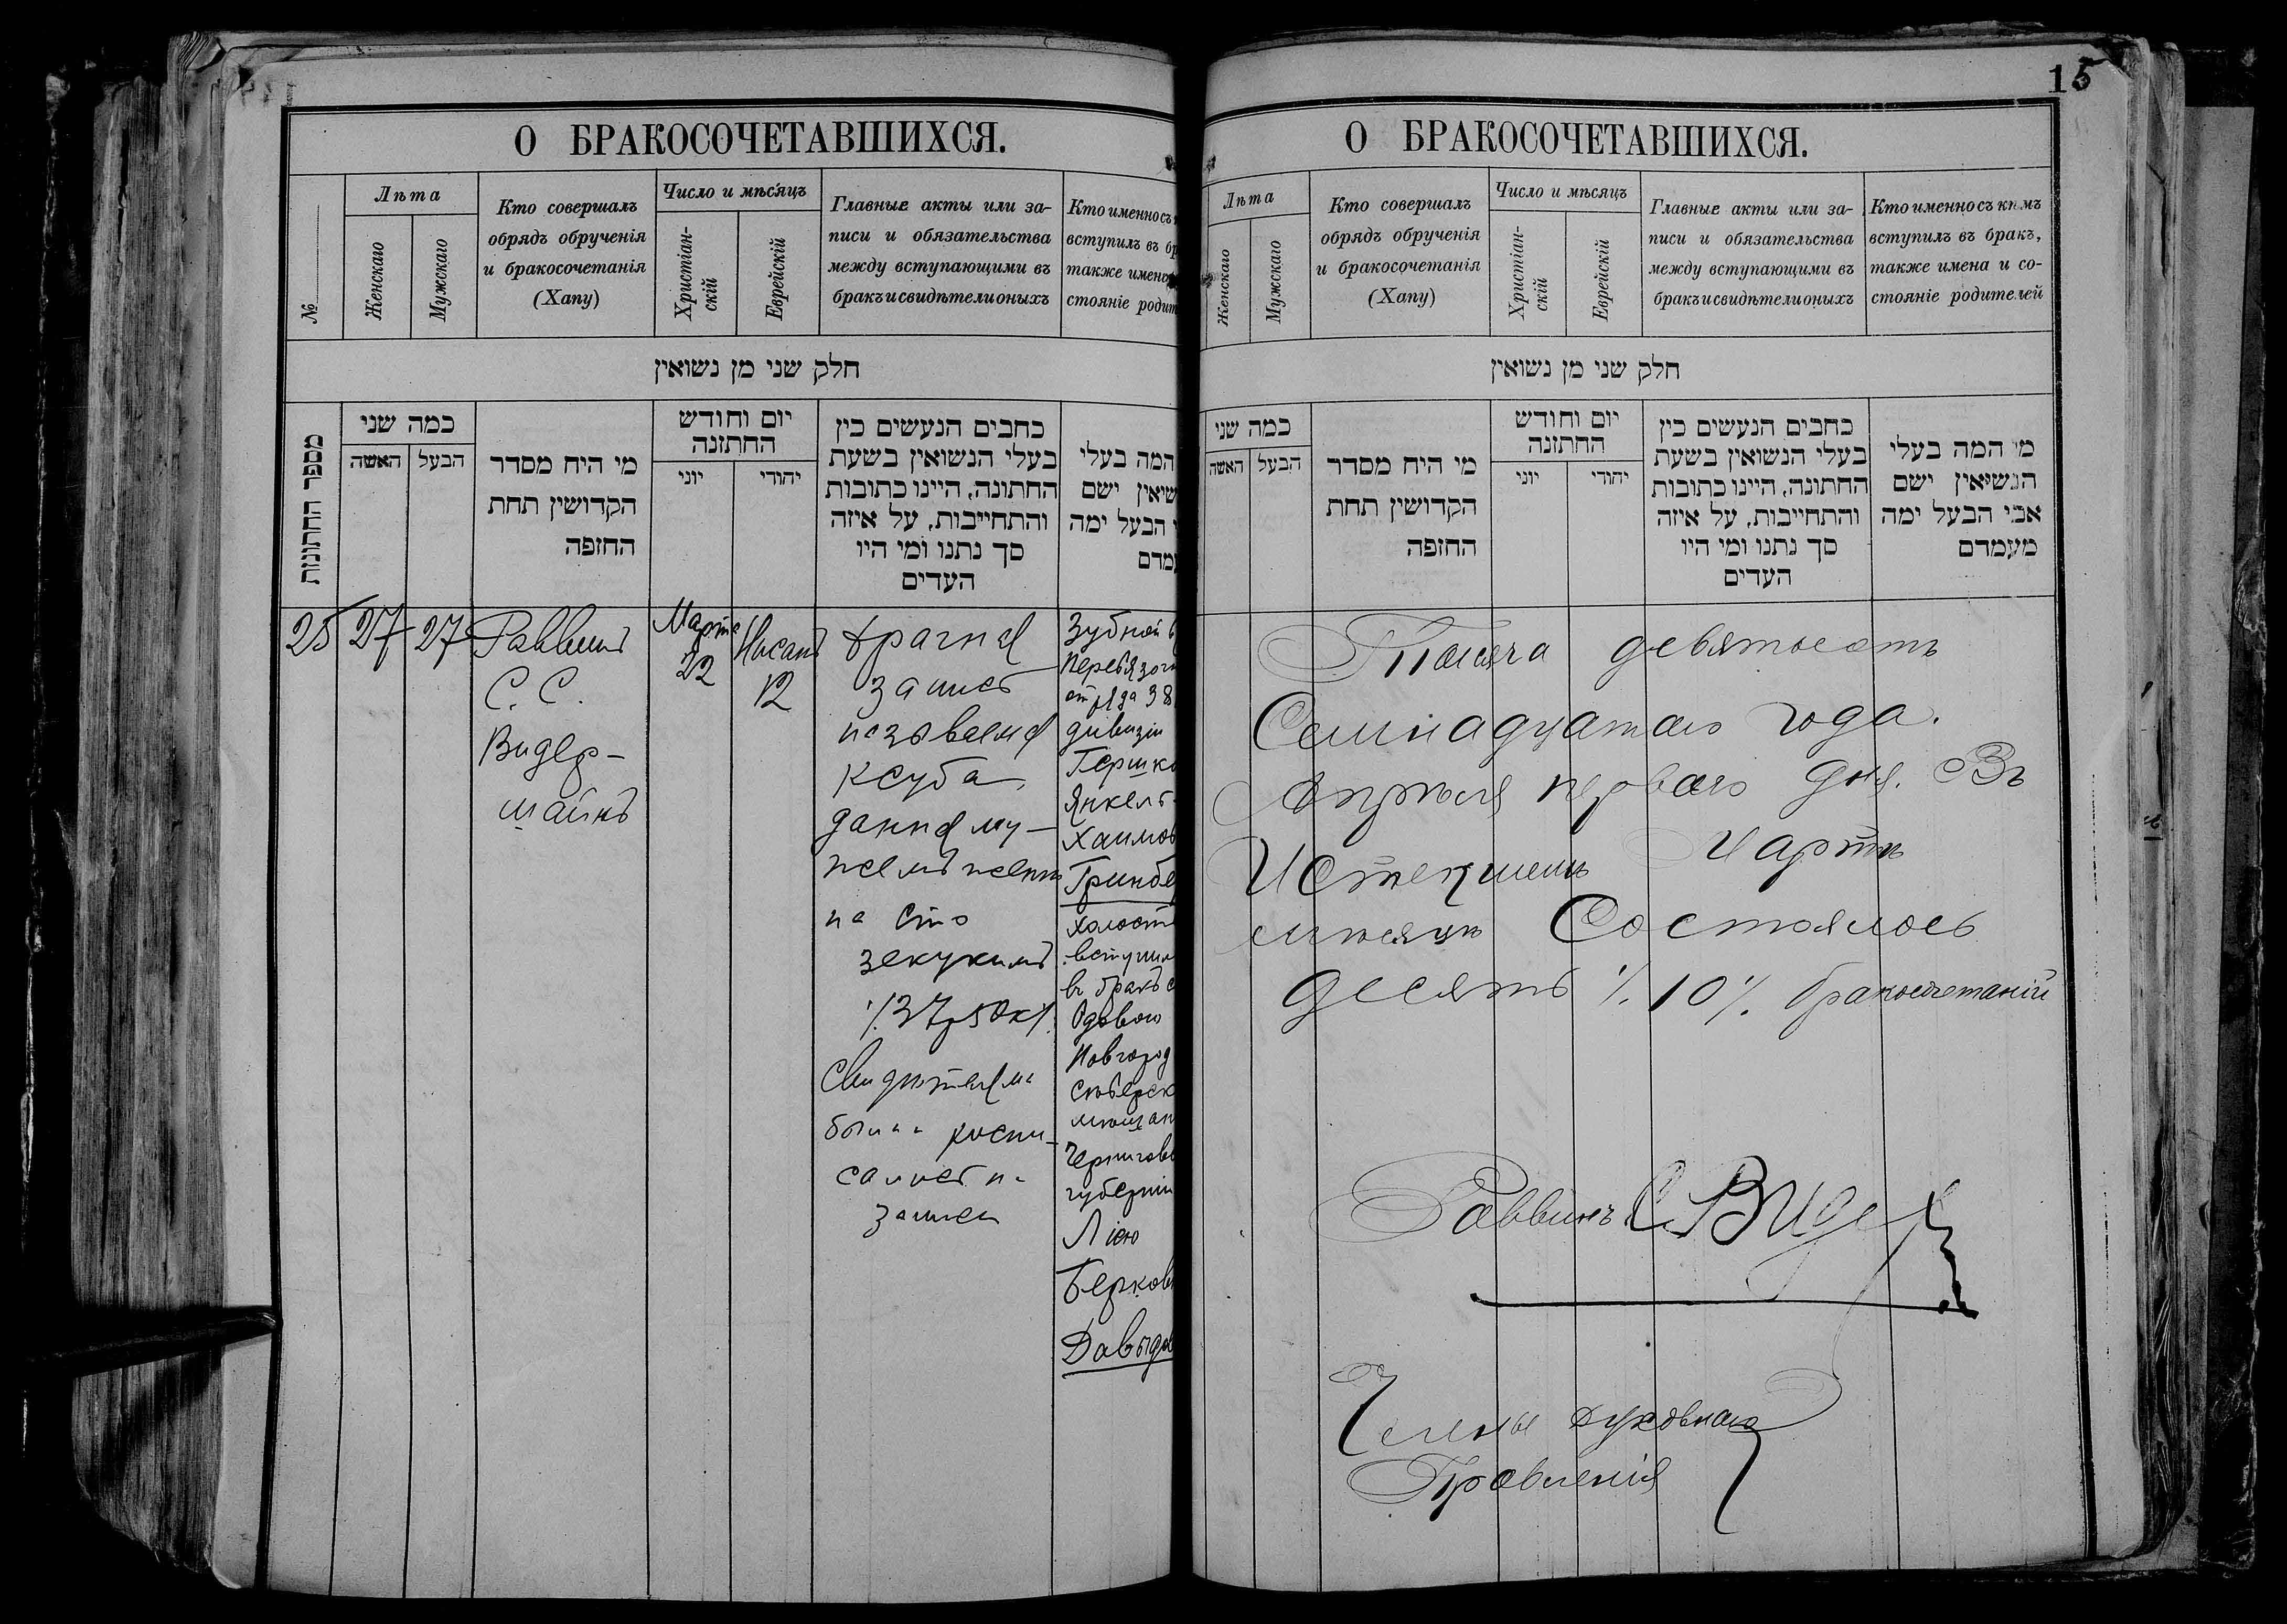 О БРАКОСОЧЕТАВШИХСЯ.
№
Лѣта
Женскаго
Мужскаго
Кто совершалъ
обрядъ обрученія
и бракосочетанія
(Хапу)
Число и мѣсяцъ
Христіан-
скій
Еврейскій
Главные акты или за-
писи и обязательства
между вступающими въ
бракъ и свидѣтели оныхъ
Кто именно съ
вступилъ въ бр
также имен
стояніе родит
חלק שני מן נשואין
מספר החתונות
כמה שני
האשה
הבעל
מי היח מסדר
הקדושין תחת
החופה
יום וחודש
החתונה
יוני
יהודי
כחבים הנעשים כין
בעלי הנשואין בשעת
החתונה, היינו כתובות
והתחייבות, על איזה
סך נתנו ומי היו
העדים
המה בעלי
שיאין ישם
הבעל ימה
עמדם
25
27
27
Раввинъ
С. С.
Видер-
шайнъ
Марта
22
Нисанъ
12
брачная
запись
называемая
ксуба
данная му-
жемъ женѣ
на сто
зекукимъ
./. 37р50к ./.
Свидѣтелями
были роспи-
запись
Зубной в
перевязочн
отряда 38
дивизіи
Гершко
Янкель
Хаимов
Гринбе
холост
вступил
въ бракъ с
вдовою
Новгород
Сѣверск
мѣщан
Чернигов
губерніи
Ліею
Берков
Давыдов
15
О БРАКОСОЧЕТАВШИХСЯ.
Лѣта
Женскаго
Мужскаго
Кто совершалъ
обрядъ обрученія
и бракосочетанія
(Хапу)
Число и мѣсяцъ
Христіан-
скій
Еврейскій
Главные акты или за-
писи и обязательства
между вступающими въ
бракъ и свидѣтели оныхъ
Кто именно съ кѣмъ
вступилъ въ бракъ,
также имена и со-
стояніе родителей
חלק שני מן נשואין
כמה שני
האשה
הבעל
מי היח מסדר
הקדושין תחת
החופה
יום וחודש
החתונה
יוני
יהודי
כחבים הנעשים כין
בעלי הנשואין בשעת
החתונה, היינו כתובות
והתחייבות, על איזה
סך נתנו ומי היו
העדים
מי המה בעלי
הנשיאין ישם
אבי הבעל ימה
מעמדם
Тысяча девятьсотъ
Семнадцатаго года.
Апрѣля перваго дня. Въ
Истекшемъ Мартѣ
мѣсяцѣ Состоялось
десять ./. 10 ./. бракосочетаній
Раввинъ С Видер
Члены духовнаго
Правленія